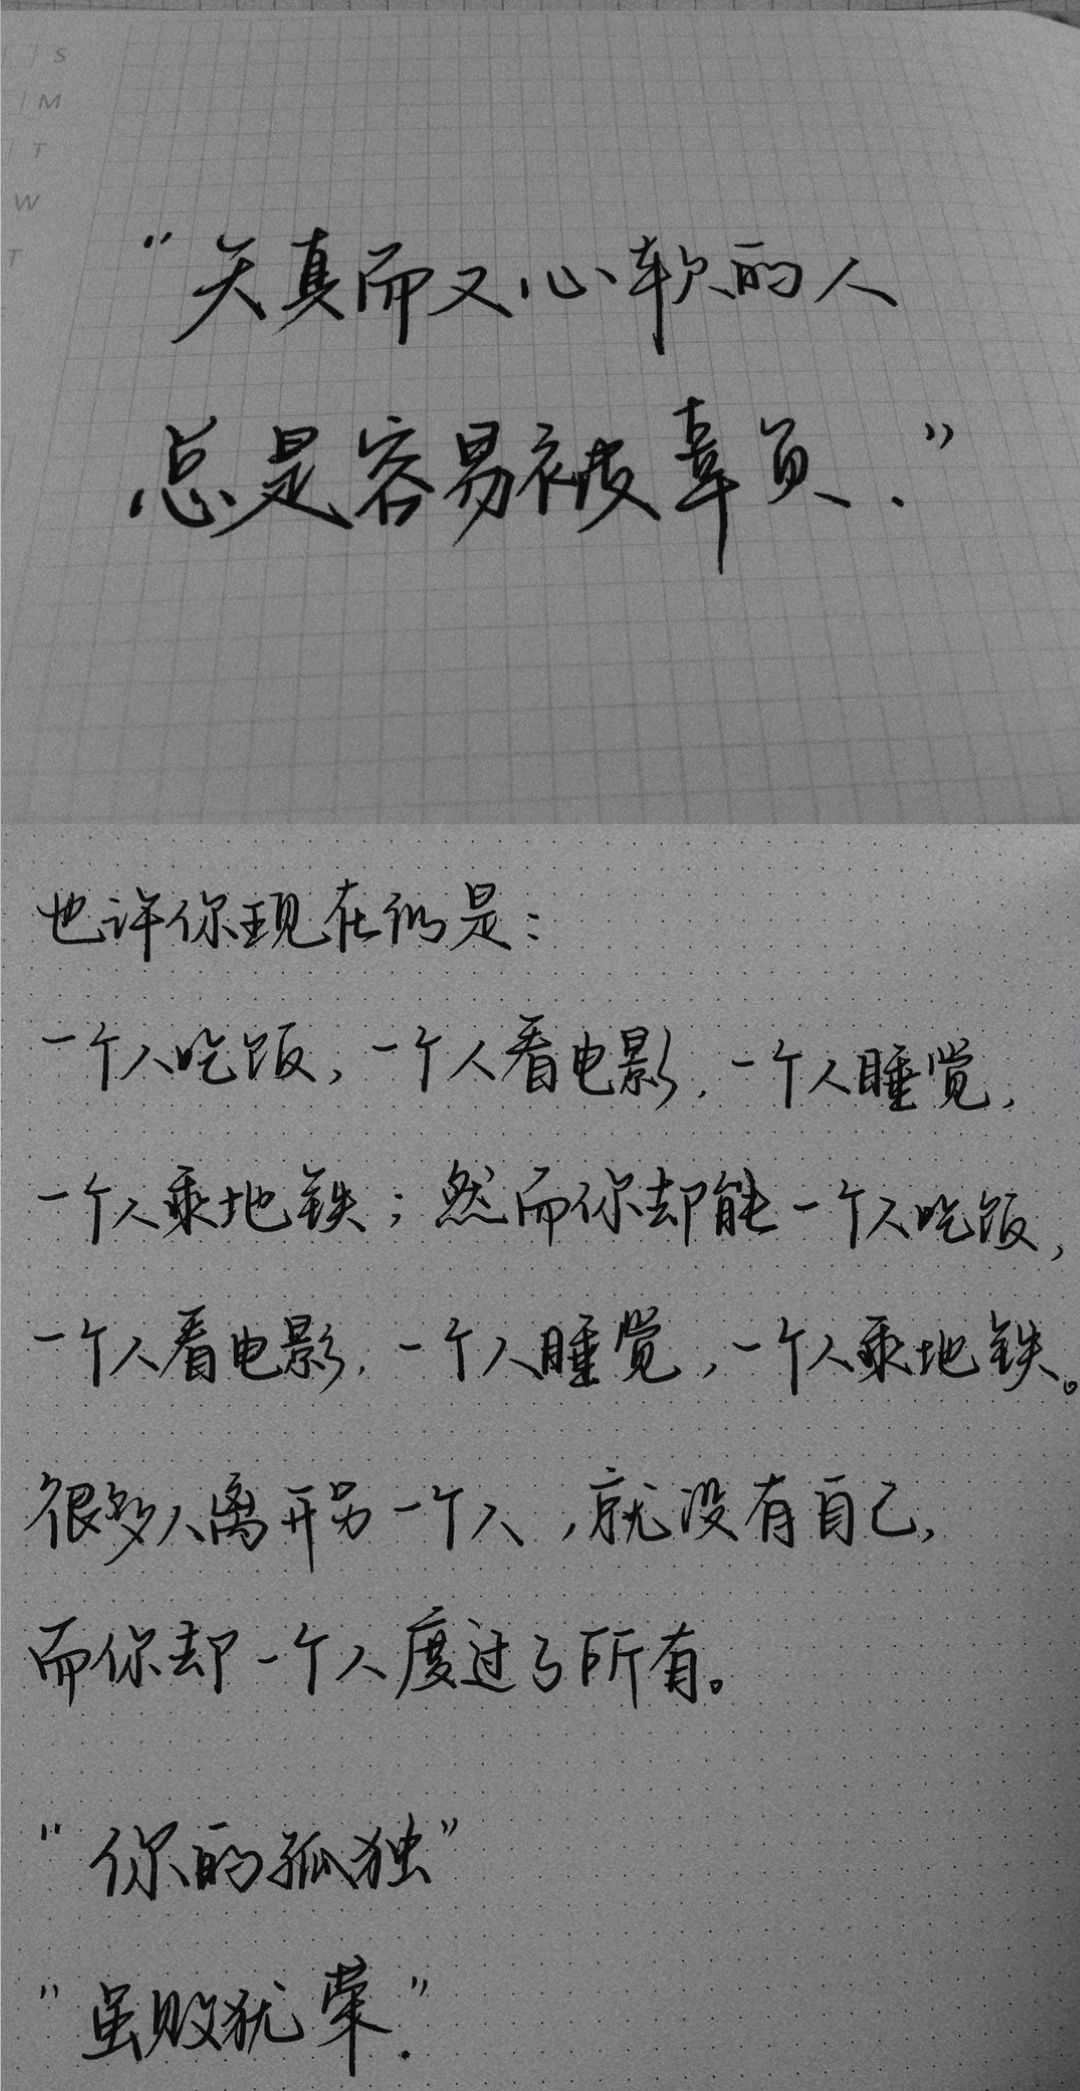 S
M
T
W
T
“天真而又心软的人
总是容易被辜负.”
也许你现在仍是：
一个人吃饭，一个人看电影，一个人睡觉，
一个人乘地铁；然而你却能一个人吃饭，
一个人看电影，一个人睡觉，一个人乘地铁。
很多人离开另一个人，就没有自己，
而你却一个人度过了所有。
“你的孤独”
“虽败犹荣.”